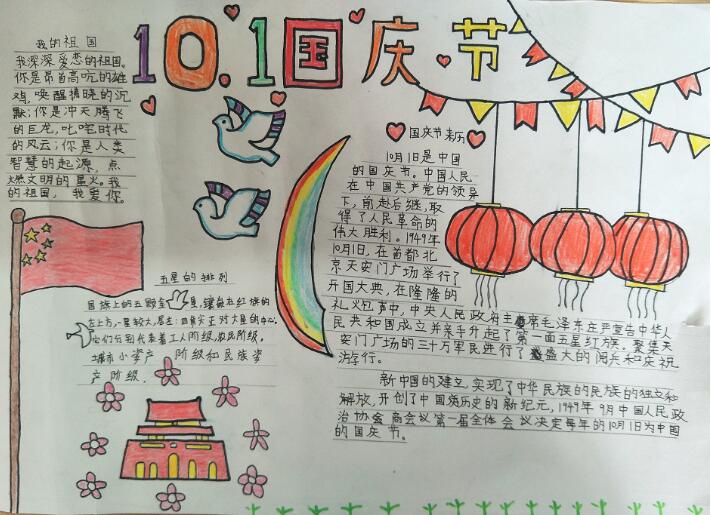 10.1国庆节
我的祖国
我深深爱恋的祖国。
你是昂首高吭的雄
鸡,唤醒拂晓的沉
默;你是冲天腾飞
的巨龙,叱咤时代
的风云;你是人类
智慧的起源,点
燃文明的星火。我
的祖国,我爱你。
五星的排列
国旗上的五颗金星,镶在红旗的
左上方,一星较大,居左;四角尖正对大星的中心。
它们分别代表着工人阶级、农民阶级。
城市小资产阶级和民族资
产阶级.
国庆节来历
10月1日是中国
的国庆节。中国人民
在中国共产党的领导
下,前赴后继,取
得了人民革命的
伟大胜利。1949年
10月1日,在首都北
京天安门广场举行了
开国大典,在隆隆的
礼火包声中,中央人民政府主席毛泽东庄严宣告中华人
民共和国成立并亲手升起了第一面五星红旗。聚集天
安门广场的三十万军民进行了盛大的阅兵和庆祝
游行。
新中国的建立,实现了中华民族的民族的独立和
解放,开创了中国历史的新纪元,1949年9月中国人民政
治协商会议第一届全体会议决定每年的10月1日为中国
的国庆节。